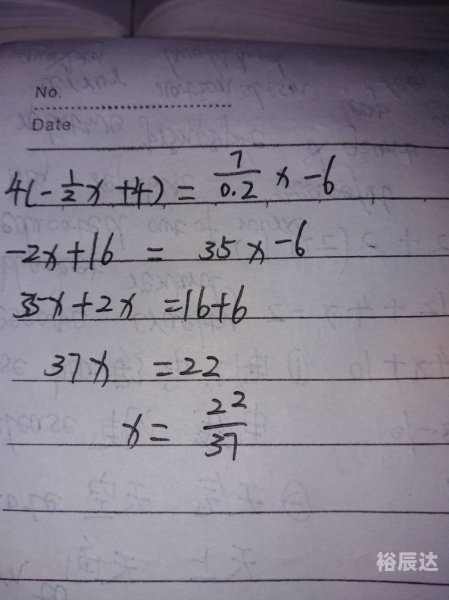 No.
Date
4(-\frac{1}{2}x+4) = \frac{7}{0.2}x-6
-2x+16 = 35x-6
35x+2x =16+6
37x =22
x= \frac{22}{37}
裕辰达